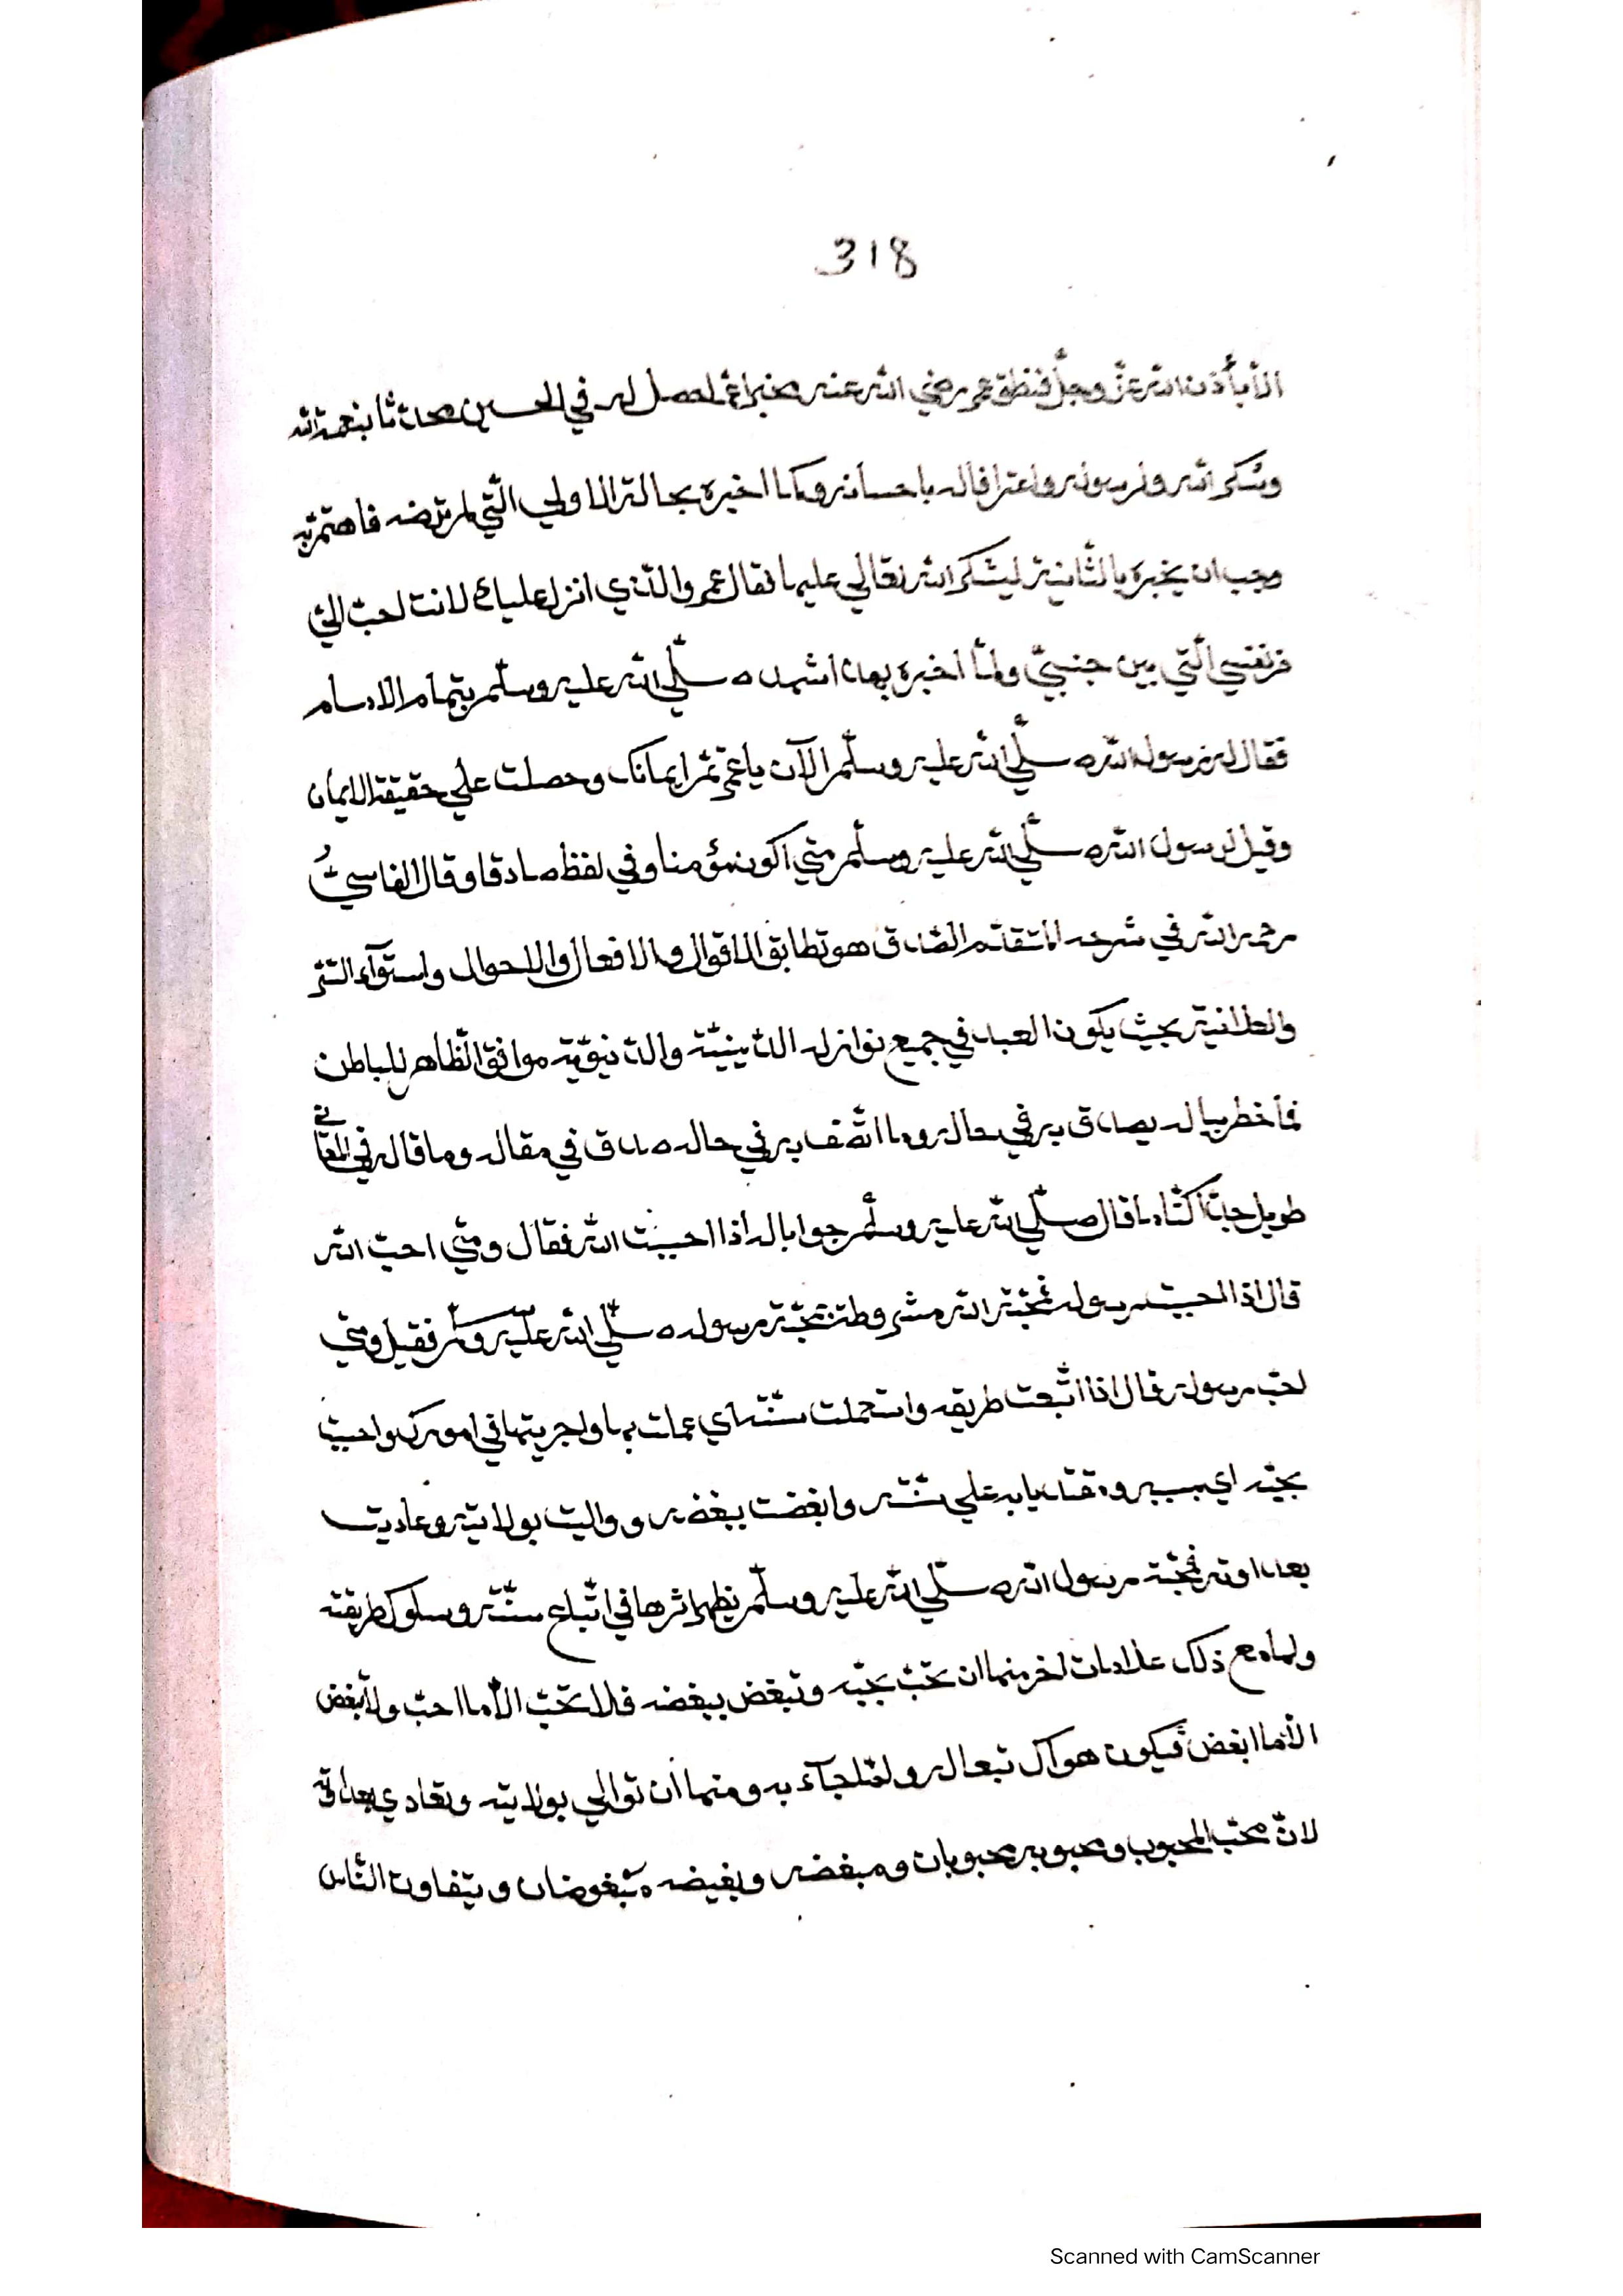 318
الا بأذن الله عزّ وجلّ فنطق عمر رضي الله عنه مخبرا عمّا حصل له في الحين محدثا بنعمة الله
وشكر الله ولرسوله واعترافا له باحسانه وكما اخبره بحالته الاولي الّتي لم ترتضه فاهتمّ به
وجب ان يخبره بالثّانية ليشكر الله تعالي عليها فقال عمر والّذي انزل عليك لانت احبّ اليّ
من نفسي الّتي بين جنبيّ ولمّا اخبره بها اشهد صلّي الله عليه وسلّم بتمام الاسلام
فقال له رسول الله صلّي الله عليه وسلّم الآن يا عمر تمّ ايمانك وحصلت علي حقيقة الايمان
وقيل لرسول الله صلّي الله عليه وسلّم متي اكون مؤمنا وفي لفظ صادقا وقال الفاسيّ
رحمه الله في شرحه المتقدّم الصّدق هو تطابق الاقوال والافعال والاحوال واستوآء السّرّ
والعلانية بحيث يكون العبد في جميع نوازله الدّينيّة والدّنيويّة موافق الظّاهر للباطن
فما خطر بباله يصدق به في حاله وما اتّصف به في حاله صدق في مقاله وما قاله في المقا
طويل حبّا كتاه ما قال صلّي الله عليه وسلّم جوابا له اذا احببت الله فقال ومتي احبّ الله
قال اذا احببت رسوله فمحبّة الله مشروطة بمحبّة رسوله صلّي الله عليه وسلّم فقيل ومتي
احبّ رسوله قال اذا اتّبعت طريقه واستعملت سنّته اي عملت بها واجريتها في امورك واحببت
بحبّه اي بسببه وقتديا به علي سنّته وابغضت ببغضه وواليت بولايته وعاديت
بعداوته فمحبّة رسول الله صلّي الله عليه وسلّم يظهر اثرها في اتّباع سنّته وسلوك طريقته
ولها مع ذلك علامات اخر منها ان تحبّ بحبّه وتبغض ببغضه فلا تحبّ الاّ ما احبّ ولا تبغض
الاّ ما ابغض فيكون هواك تبعا له ولما جآء به ومنها ان توالي بولايته وتعادي بعداوته
لانّ محبّ المحبوب ومحبوبه محبوبان ومبغضه وبغيضه مبغوضان ويتفاوت النّاس
Scanned with CamScanner